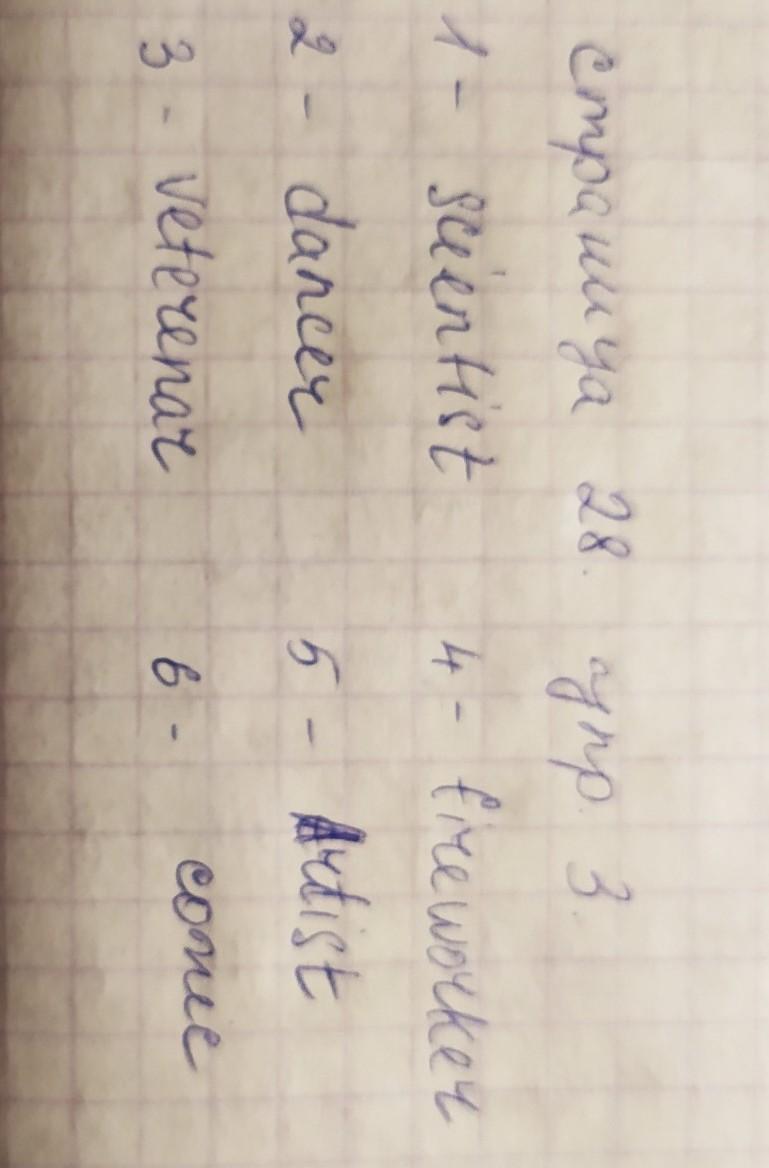 страница 28. упр. 3.
1 - scientist 4 - fireworker
2 - dancer 5 - Artist
3 - veterenar 6 - comic